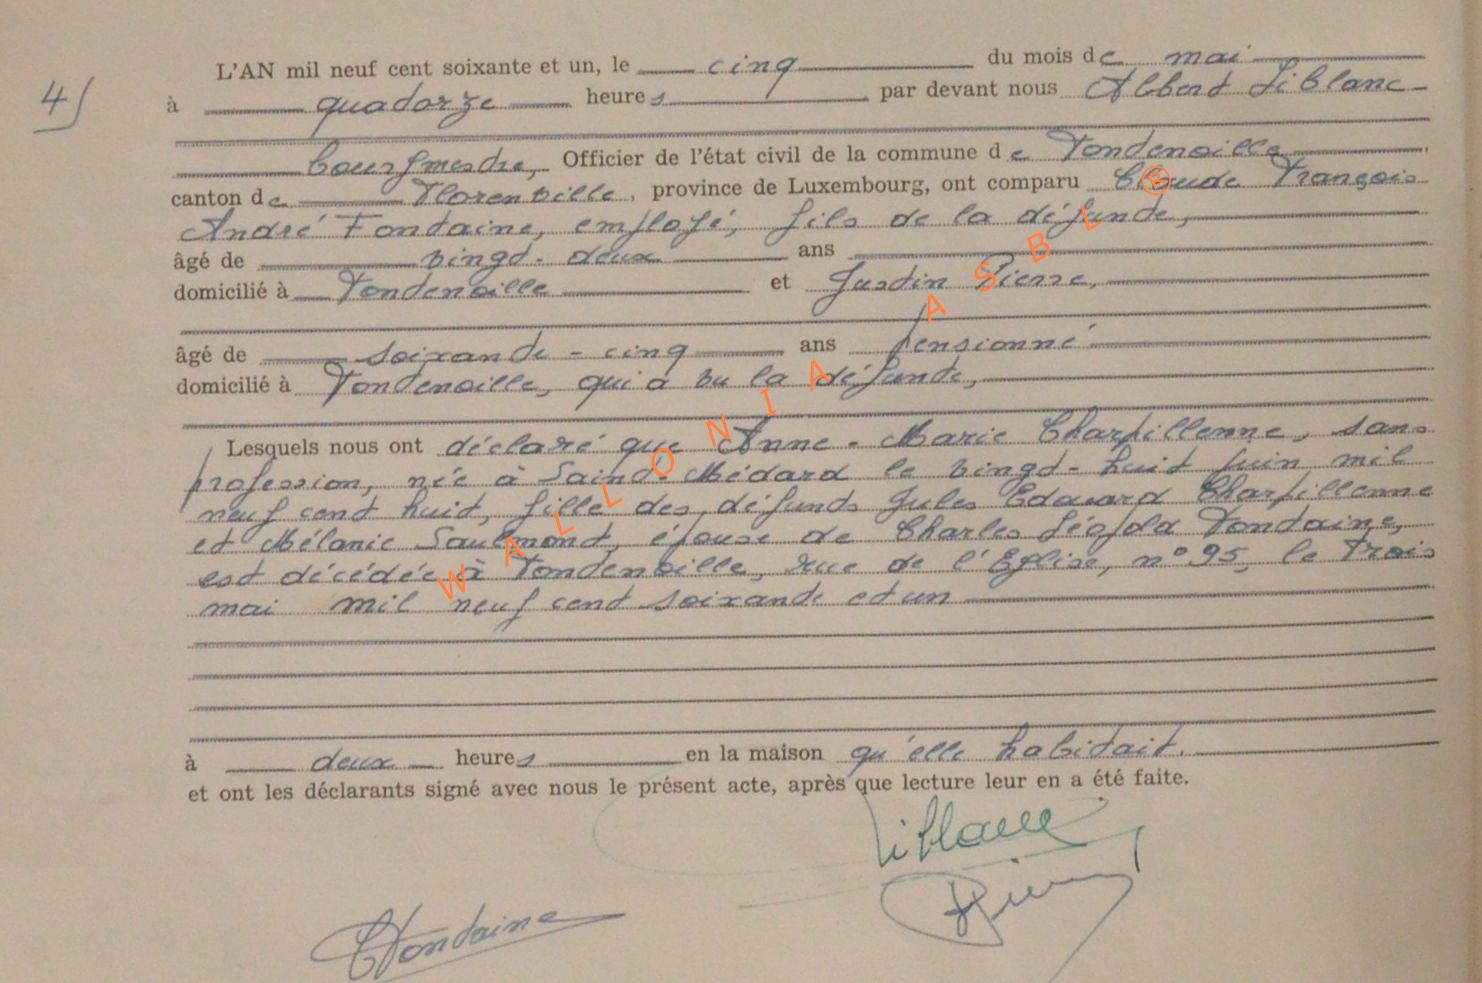 4)
L'AN mil neuf cent soixante et un, le cinq du mois de mai
à quatorze heures par devant nous Albert Liblanc
bourgmestre, Officier de l'état civil de la commune de Fontenoille,
canton de Florenville, province de Luxembourg, ont comparu Claude François
André Fontaine, employé, fils de la défunte,
âgé de vingt-deux ans
domicilié à Fontenoille et Justin Pierre,
âgé de soixante-cinq ans pensionné
domicilié à Fontenoille, qui a vu la défunte,
Lesquels nous ont déclaré que Anne-Marie Charpillenne, sans
profession, née à Saint-Médard le vingt-huit juin mil
neuf cent huit, fille des défunts Jules Edouard Charpillenne
et Mélanie Saulmont, épouse de Charles Léopold Fontaine,
est décédée à Fontenoille, rue de l'Eglise, n° 95, le trois
mai mil neuf cent soixante et un
à deux heures en la maison qu'elle habitait.
et ont les déclarants signé avec nous le présent acte, après que lecture leur en a été faite.
Liblanc
Pierre
CFontaine
WALLONIA ASBL